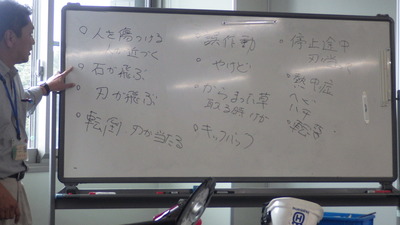 人を傷つける
近づく
石が飛ぶ
刃が飛ぶ
転倒 刃が当たる
誤作動
やけど
からまった草
取る時けが
キックバック
停止途中
熱中症
ヘビ
ハチ